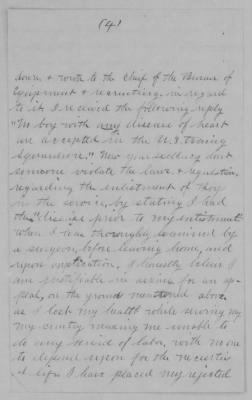 (4)
down & wrote to the Chief of the Bureau of
Equipment & recruiting in regard
to it I received the following reply
"No boy with any disease of heart
are accepted in the U.S. Training
Squadron." Now you see
someone violate the laws & regulation
regarding the enlistment of boys
in the service, by stating I had
the disease prior to my enlistment
when I was thoroughly examined by
a surgeon, before leaving home, and
upon application. I honestly believe I
am justifiable in asking for an ap-
peal, on the grounds mentioned above
as I lost my health while serving my
my country making me unable to
do any kind of labor, with no one
to depend upon for the necessities
of life I have placed my rejected